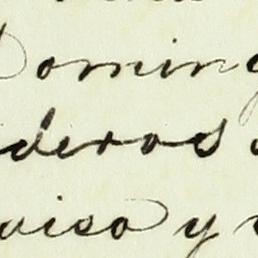 Doming
deros
uiso y